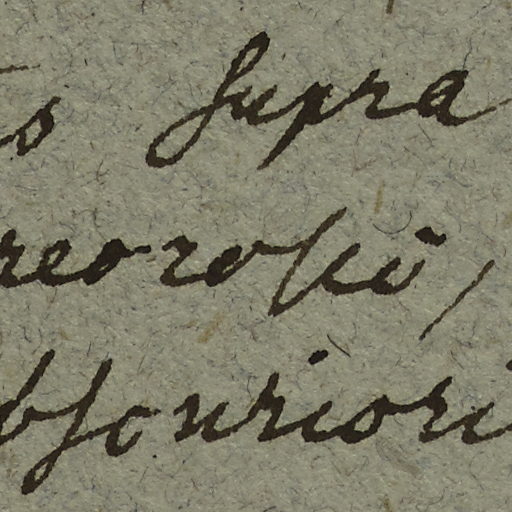 supra
reoroseo,
bscuriori